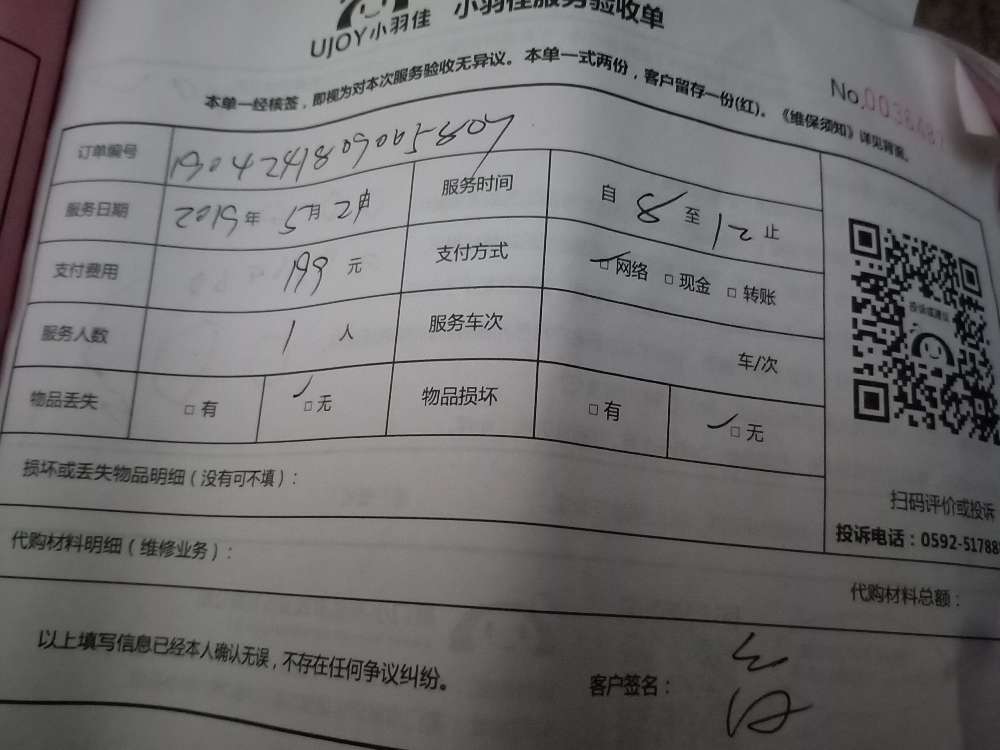 UJOY小羽佳 小羽佳服务验收单
本单一经核签，即视为对本次服务验收无异议。本单一式两份，客户留存一份(红)。《维保须知》详见背案。
No.
订单编号 1904241809005807
服务日期 2019年 5月 2日 服务时间 自 8 至 12 止
支付费用 199 元 支付方式 □网络 □现金 □转账
服务人数 1 人 服务车次 车/次
物品丢失 □有 □无 物品损坏 □有 □无
投诉或建议
扫码评价或投诉
投诉电话：0592-51788
损坏或丢失物品明细（没有可不填）：
代购材料明细（维修业务）：
代购材料总额：
以上填写信息已经本人确认无误，不存在任何争议纠纷。
客户签名：